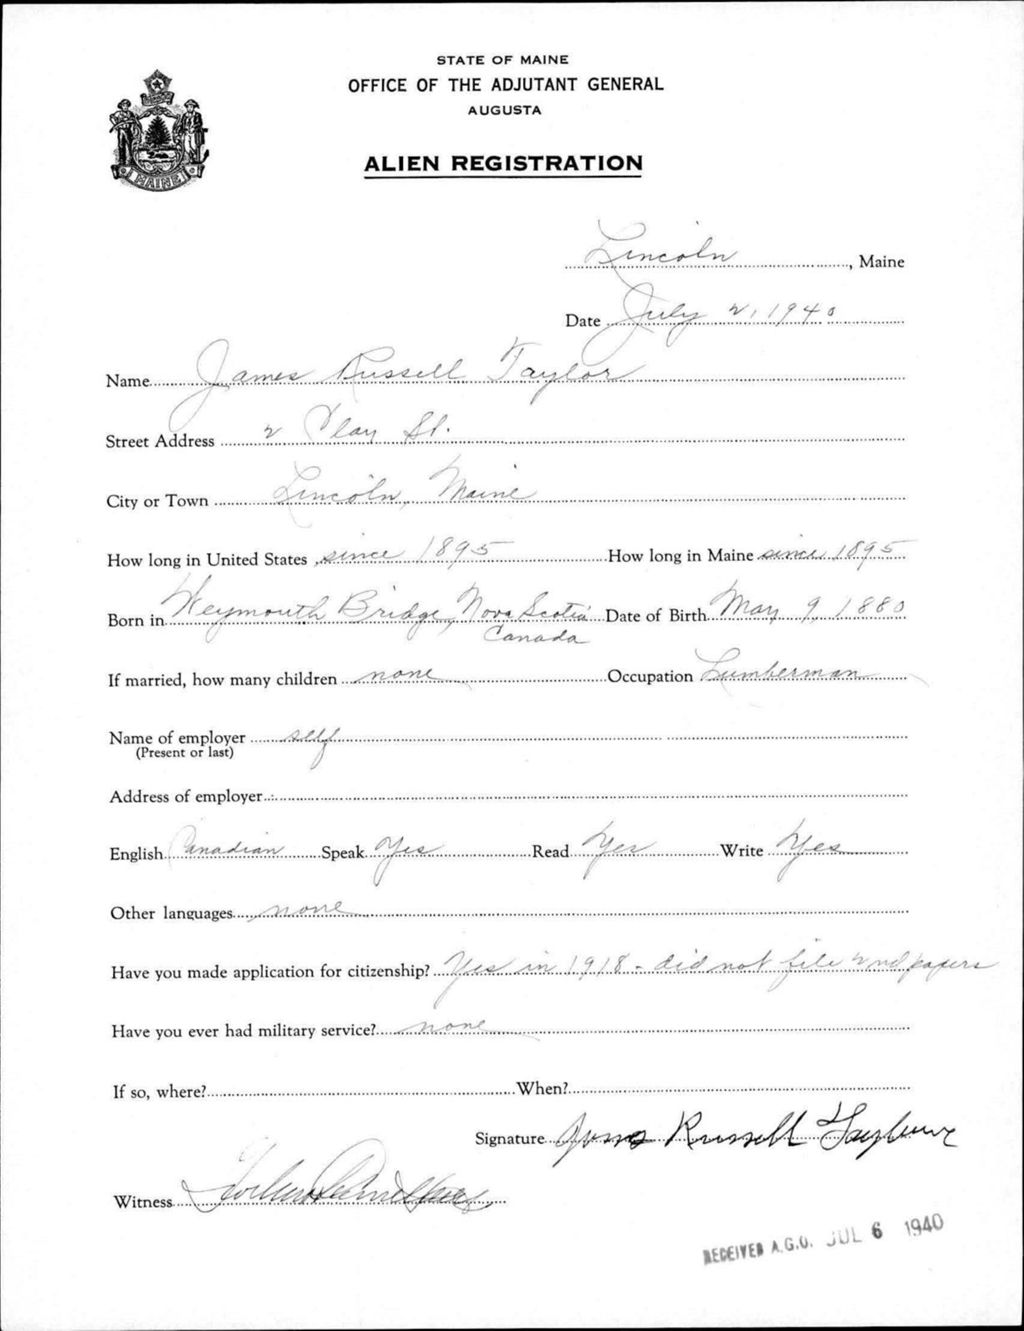 STATE OF MAINE
OFFICE OF THE ADJUTANT GENERAL
AUGUSTA
MAINE
ALIEN REGISTRATION
Lincoln, Maine
Date July 2, 1940
Name James Russell Taylor
Street Address 2 Clay St.
City or Town Lincoln, Maine
How long in United States since 1895 How long in Maine since 1895
Born in Weymouth Bridge, Nova Scotia Date of Birth May 9, 1880
Canada
If married, how many children none Occupation Lumberman
Name of employer self
(Present or last)
Address of employer
English Canadian Speak Yes Read Yes Write Yes
Other languages none
Have you made application for citizenship? Yes in 1918 - did not file 2nd papers
Have you ever had military service? none
If so, where? When?
Signature James Russell Taylor
Witness
RECEIVED A.G.O. JUL 6 1940